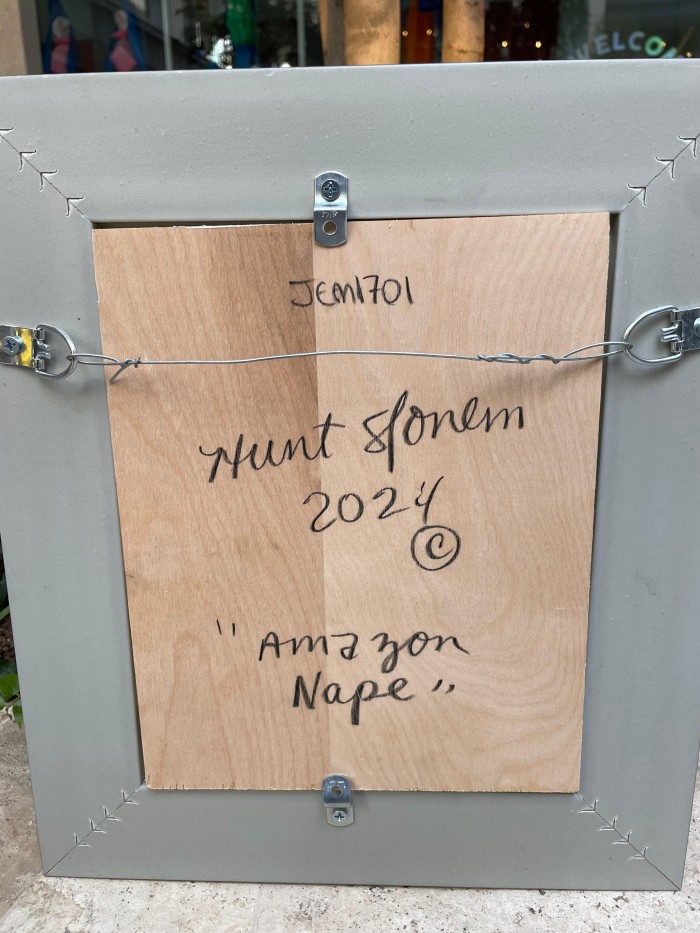 WELCO
JEM1701
Hunt Slonem
2024
©
"Amazon
Nape"